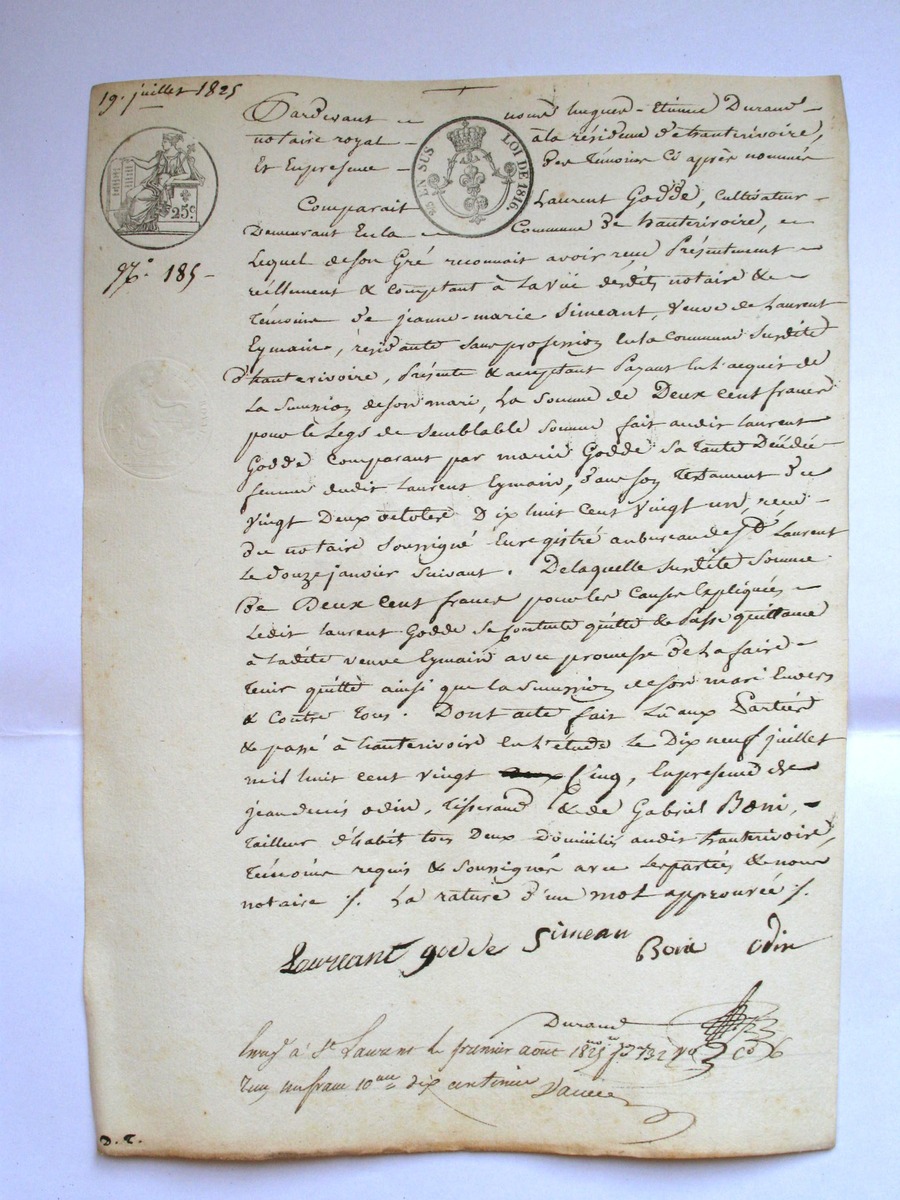 19. juillet 1825
Pardevant nous hugues-Etienne Durand
notaire royal à la résidence d'hauterivoire,
Et En presence des témoins Ci après nommés
25 EN SUS LOI DE 1816.
25 c
Comparait Laurent Godde, Cultivateur
Demeurant En la Commune de hauterivoire,
N.º 185
Lequel de son Gré reconnait avoir reçu Présentement
réellement & comptant à la vüe desdits notaire &
témoins de jeanne-marie Simeant, veuve de Laurent
Eymain, résidante sans profession En la Commune Susdite
d'hauterivoire, Présente & acceptant Payant En l'acquit de
la Succession de son mari, la somme de Deux cent francs
pour le Legs de Semblable Somme fait audit Laurent
Godde Comparant par marie Godde sa tante Décédée
femme dudit Laurent Eymain, dans son testament du
vingt Deux octobre Dix huit Cent vingt un, reçu
du notaire Soussigné Enregistré au bureau de St Laurent
Le douze janvier Suivant. De laquelle susdite Somme
de Deux cent francs pour les Causes Expliquées
Ledit Laurent Godde se Contente quitte & Passe quittance
à ladite veuve Eymain avec promesse de La faire
tenir quitte ainsi que la Succession de son mari Envers
& Contre tous. Dont acte fait Lu aux Parties
& passé à hauterivoire En l'étude le Dix neuf juillet
mil huit cent vingt Cinq, En presence de
jean denis odin, tisserand & de Gabriel Boni,
tailleur d'habits tous Deux domiciliés audit hauterivoire,
témoins requis & Soussignés avec les parties & nous
notaire ./. La rature d'un mot approuvée ./.
Laureant godde Simean Boni odin
Durand
Enreg. à St Laurent le premier août 1825 fº 132
reçu un franc 10me dix centimes
D. T.